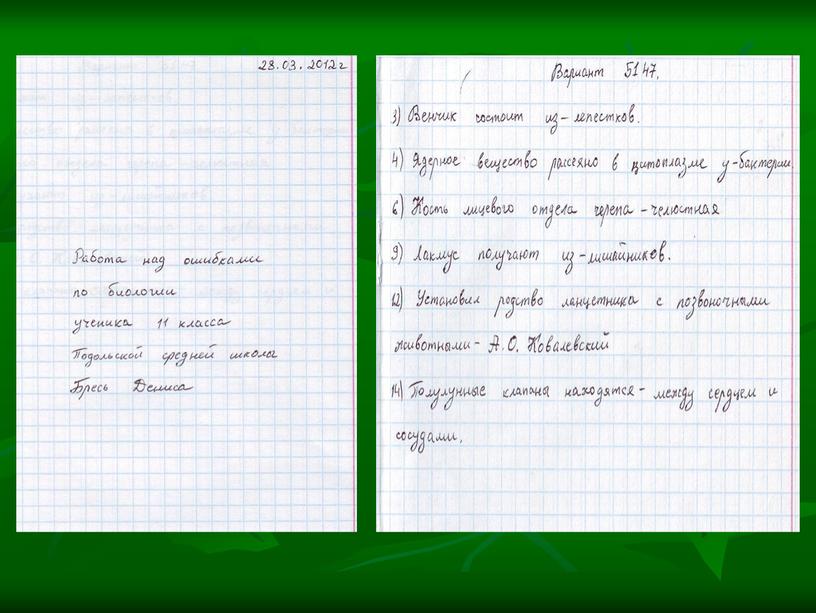 28.03.2012г
Работа над ошибками
по биологии
ученика 11 класса
Подольской средней школы
Бресь Дениса
Вариант 5147.
3) Венчик состоит из-лепестков.
4) Ядерное вещество рассеяно в цитоплазме у-бактерии.
6) Кость лицевого отдела черепа-челюстная
9) Лакмус получают из-лишайников.
12) Установил родство ланцетника с позвоночными
животными- А.О. Ковалевский
14) Полулунные клапаны находятся- между сердцем и
сосудами.